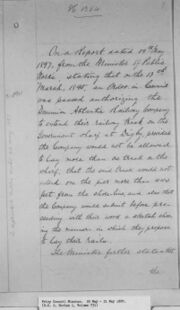 On a Report dated 19th May
1897, from the Minister of Public
Works, stating that on the 13th
March, 1895, an Order in Council
was passed authorizing the
Dominion Atlantic Railway Company
to extend their railway track on the
Government wharf at Digby, provided
the Company would not be allowed
to lay more than one track on the
wharf, that the said track would not
extend on the pier more than
feet from the shore-line and also that
the Company would submit before pro-
ceeding with their work a sketch show-
ing the manner in which they propose
to lay their rails.
The Minister further states that
the
Privy Council Minutes, 22 May - 31 May 1897,
(R.G. 2, Series 1, Volume